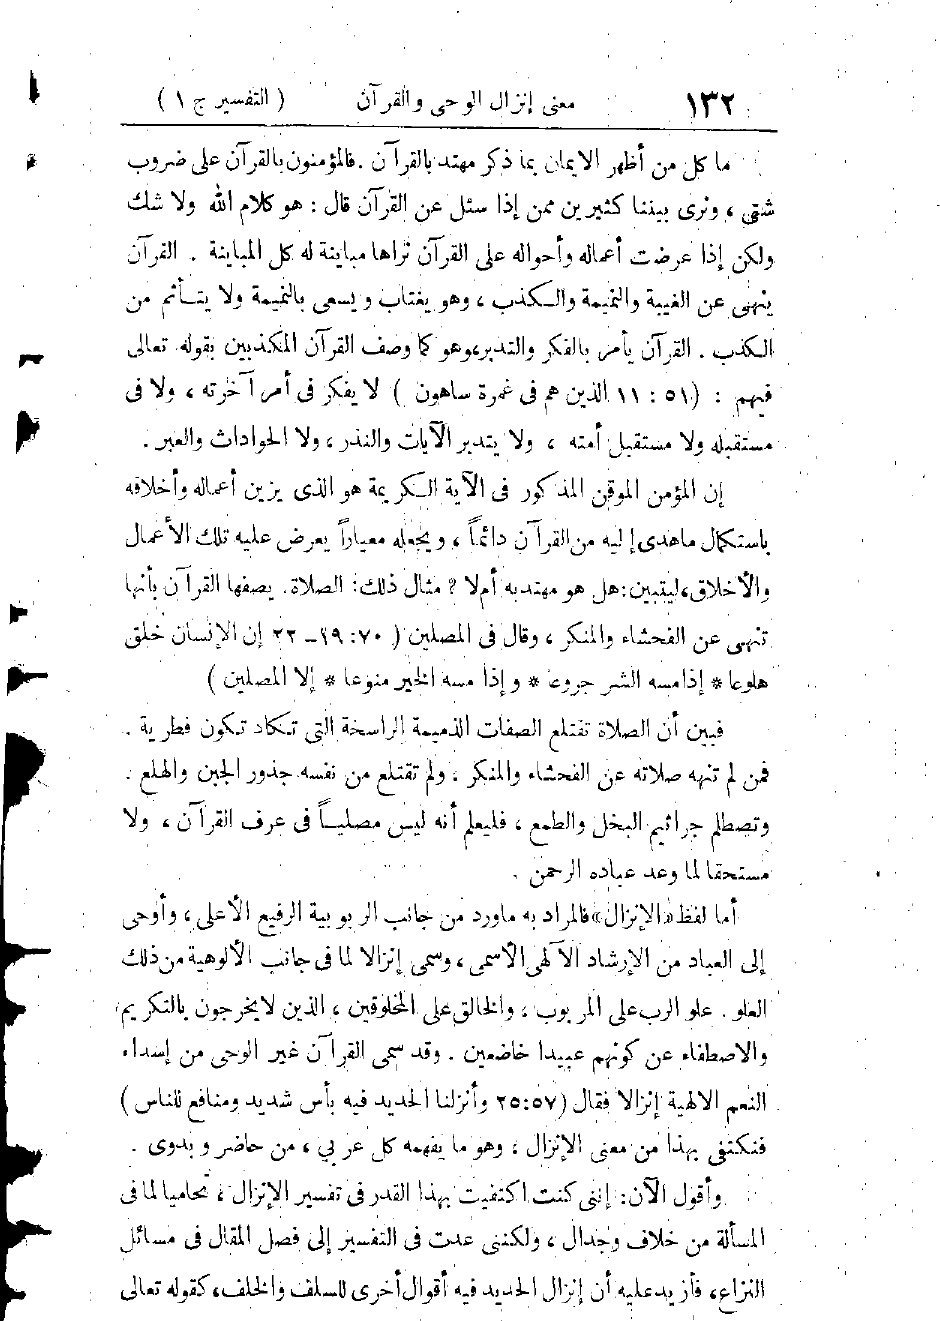 ١٣٢ معنى إنزال الوحى والقرآن ( التفسير ج ١ )
ما كل من أظهر الايمان بما ذكر مهتد بالقرآن . فالمؤمنون بالقرآن على ضروب
شتى ، ونرى بيننا كثيرين ممن إذا سئل عن القرآن قال : هو كلام الله ولا شك
ولكن إذا عرضت أعماله وأحواله على القرآن تراها مباينة له كل المباينة . القرآن
ينهى عن الغيبة والنميمة والكذب ، وهو يغتاب ويسعى بالنميمة ولا يتأثم من
الكذب . القرآن يأمر بالفكر والتدبر، وهو كما وصف القرآن المكذبين بقوله تعالى
فيهم : (٥١ : ١١ الذين هم فى غمرة ساهون ) لا يفكر فى أمر آخرته ، ولا فى
مستقبله ولا مستقبل أمته ، ولا يتدبر الآيات والنذر ، ولا الحوادث والعبر .
إن المؤمن الموقن المذكور فى الآية الكريمة هو الذى يزين أعماله وأخلاقه
باستكمال ماهدى إليه من القرآن دائماً ، ويجعله معياراً يعرض عليه تلك الأعمال
والأخلاق، ليتبين: هل هو مهتد به أم لا ؟ مثال ذلك: الصلاة. يصفها القرآن بأنها
تنهى عن الفحشاء والمنكر ، وقال فى المصلين ( ٧٠ :١٩ـ ٢٢ إن الإنسان خلق
هلوعا * إذا مسه الشر جزوعا * وإذا مسه الخير منوعا * إلا المصلين )
فبين أن الصلاة تقتلع الصفات الذميمة الراسخة التى تكاد تكون فطرية .
فمن لم تنهه صلاته عن الفحشاء والمنكر ، ولم تقتلع من نفسه جذور الجبن والهلع .
وتصطلم جراثيم البخل والطمع ، فليعلم أنه ليس مصلياً فى عرف القرآن ، ولا
مستحقا لما وعد عباده الرحمن .
أما لفظ «الإنزال» فالمراد به ماورد من جانب الربوبية الرفيع الأعلى ، وأوحى
إلى العباد من الإرشاد الآلهى الأسمى ، وسمى إنزالا لما فى جانب الألوهية من ذلك
العلو . علو الرب على المربوب ، والخالق على المخلوقين ، الذين لا يخرجون بالتكريم
والاصطفاء عن كونهم عبيدا خاضعين . وقد سمى القرآن غير الوحى من إسداء
النعم الالهية إنزالا فقال (٢٥:٥٧ وأنزلنا الحديد فيه بأس شديد ومنافع للناس )
فنكتفى بهذا من معنى الإنزال ، وهو ما يفهمه كل عربى ، من حاضر وبدوى .
وأقول الآن: إننى كنت اكتفيت بهذا القدر فى تفسير الإنزال ، تحاميا لما فى
المسألة من خلاف وجدال ، ولكننى عدت فى التفسير إلى فصل المقال فى مسائل
النزاع، فأزيد عليه أن إنزال الحديد فيه أقوال أخرى للسلف والخلف، كقوله تعالى